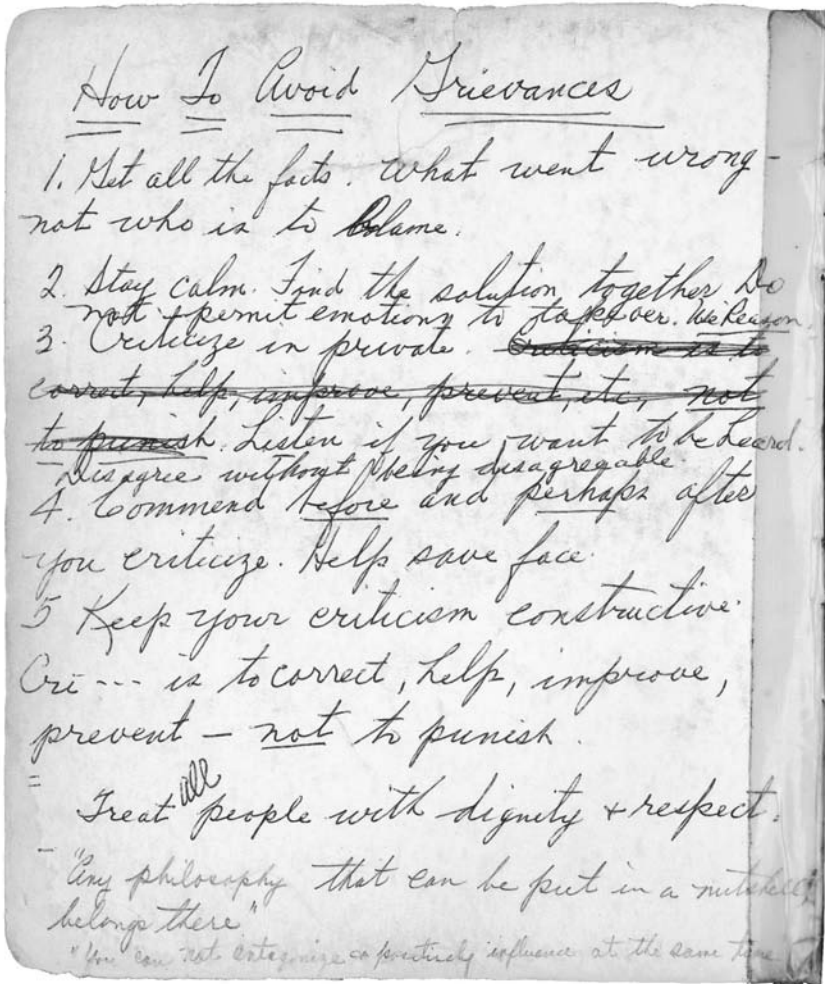 How To Avoid Grievances
1. Get all the facts. What went wrong -
not who is to blame.
2. Stay calm. Find the solution together Do
not permit emotions to take over. Use Reason
3. Criticize in private. Criticism is to
correct, help, improve, prevent, etc, not
to punish. Listen if you want to be heard.
- Disagree without being disagreeable.
4. Commend before and perhaps after
you criticize. Help save face.
5 Keep your criticism constructive.
Cri --- is to correct, help, improve,
prevent – not to punish.
Treat all people with dignity + respect.
"Any philosophy that can be put in a nutshell
belongs there"
"You can not antagonize & positively influence at the same time